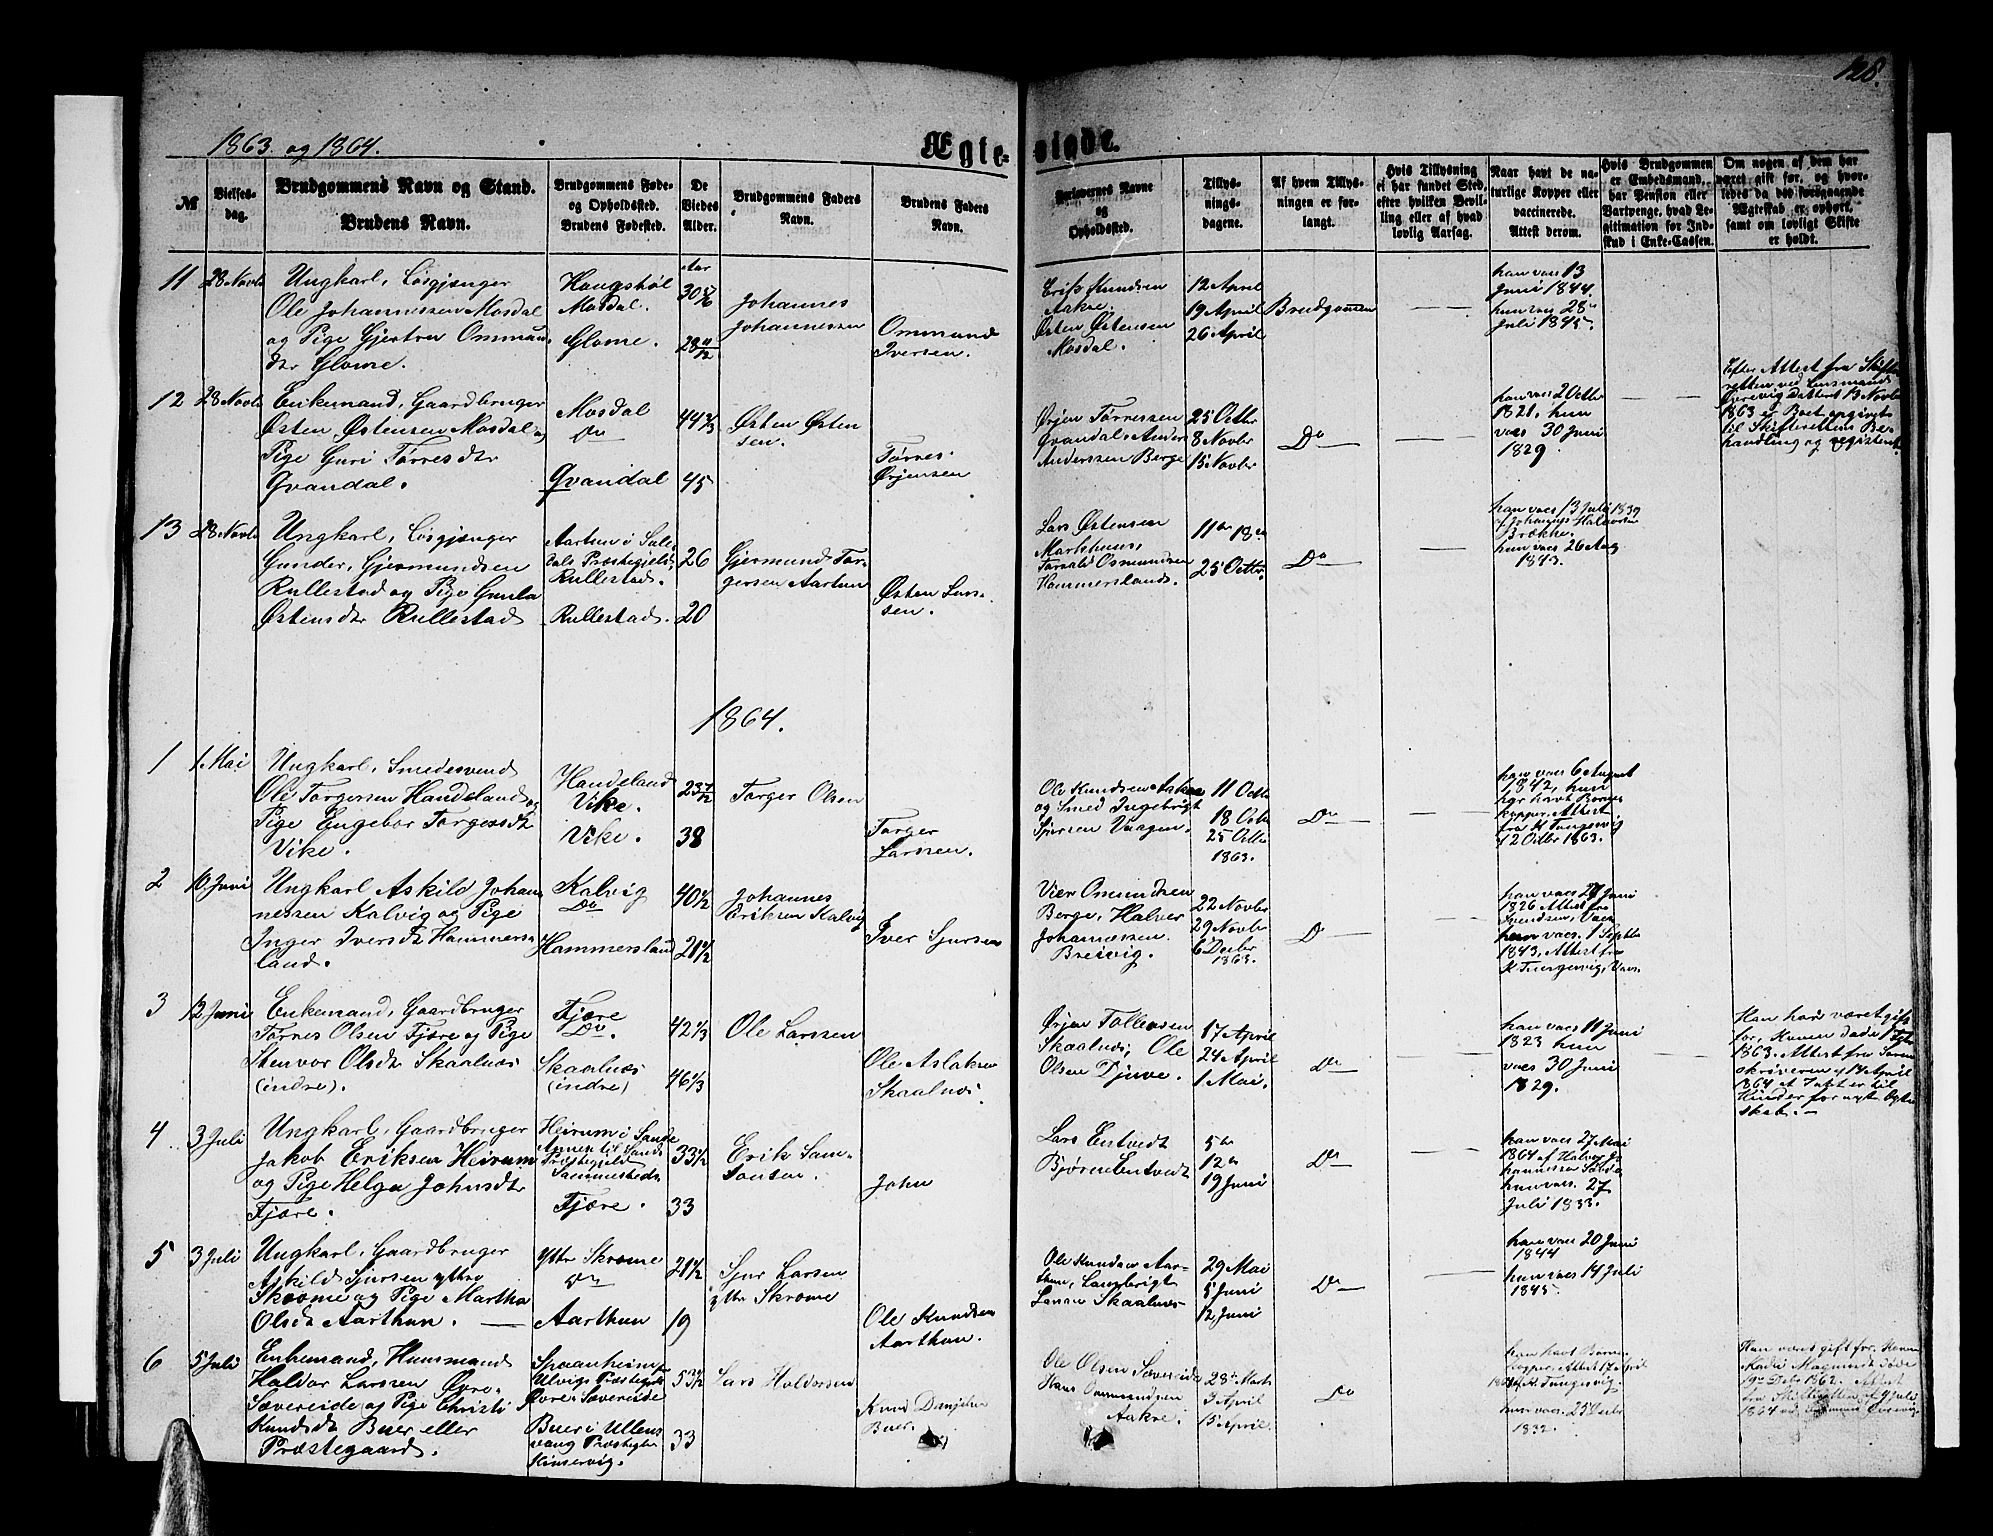 128.
1863. og 1864.
Ægte-viede.
№
Vielses-
dag.
Brudgommens Navn og Stand.
Brudens Navn.
Brudgommens Føde-
og Opholdssted.
Brudens Fødested.
De
Viedes
Alder.
Brudgommens Faders
Navn.
Brudens Faders
Navn.
Forlovernes Navne
og
Opholdssted.
Tillys-
nings-
dagene.
Af hvem Tillys-
ningen er for-
langt.
Hvis Tillysning
ei har fundet Sted,
efter hvilken Bevil-
ling eller af hvad
lovlig Aarsag.
Naar havt de na-
turlige Kopper eller
vaccinerede.
Attest derom.
Hvis Brudgommen
er Embedsmand,
har Pension eller
Vartpenge, hvad Le-
gitimation for Ind-
skud i Enke-Cassen.
Om nogen af dem har
været gift før, og hvor-
ledes da det foregaaende
Ægteskab er ophørt,
samt om lovligt Skifte
er holdt.
11 28 Novbr
Ungkarl, Løsgjænger
Ole Johannessen Mosdal
og Pige Gjertru Ommun
dtr Glome.
Haugstøl
Mosdal.
Glome.
Aar
30 5/6
28 11/12
Johannes
Johannessen
Ommund
Iversen.
Knudsen
Aakre.
Østen Østensen
Mosdal.
12 April
19 April
26 April
Brudgommen
han vacs 13
Juni 1844.
hun vacs 28de
Juli 1845.
12 28 Novbr
Enkemand, Gaardbruger
Østen Østensen Mosdal og
Pige Guri Tørresdtr
Qvandal.
Mosdal
Do
Qvandal
44 2/3
45
Østen Østen
sen.
Tørres
Ørjensen
Ørjen Tørressen
Qvandal, Anders
Anderssen Berge
25 Octbr
8 Novbr
15 Novbr
Do
han vacs 20 Octbr
1821, hun
vacs 30 Juni
1829
Efter Attest fra Skifte
retten ved Lensmand
datert 13 Novbr
1863 er Boet opgivet
til Skifterettens Be
handling og registeret
13 28 Novbr
Ungkarl, Løsgjænger
Gunder Gjermundsen
Rullestad og Pige Gunla
Østensdtr Rullestad
Aarthun i Sule
dals Præstegjeld,
Rullestad.
Rullestad.
26
20
Gjermund Tor-
gersen Aarthun
Østen Lars-
sen.
Lars Østensen
Markhuus,
Osmundsen
Hammersland.
11te 18de
25 Octbr.
Do
han vacs 13 Juli 1839
af Johannes Halvorsen
Brække.
hun vacs 26 Aug
1843.
1864.
1 1. Mai
Ungkarl, Smedesvend
Ole Torgersen Handeland og
Pige Engebor Torgersdtr
Vike.
Handeland
Vike.
Vike.
23 7/12
38
Torger Olsen
Torger
Larssen.
Ole Knudsen Aakre
og Smed Ingebrigt
Sjursen Vaagen.
11 Octbr
18 Octbr
25 Octbr
1863.
Do
han vacs 6 August
1842, hun
har havt Børne
kopper, Attest
fra K Tungesvig
12 Octbr 1863.
2 10 Juni
Ungkarl Askild Johan
nessen Kalvig og Pige
Inger Iversdtr Hammers-
land.
Kalvig
Do
Hammersland
40 1/2
21 1/2
Johannes
Eriksen Kalvig
Iver Sjursen
Osmundsen
Berge, Halver
Johannessen
Breivig.
22 Novbr
29 Novbr
6 Decbr
1863.
Do
han vacs 27 Juni
1826 Attest fra
Svendsen, Vacs
hun vacs. 1 Septbr
1843, Attest fra
K Tungesvig, Vacs.
3 12 Juni
Enkemand, Gaardbruger
Tørres Olsen Fjære og Pige
Stenvor Olsdtr Skaalnæs
(indre).
Fjære
Do.
Skaalnæs
(indre)
42 1/3
46 1/3
Ole Larssen
Ole Aslaksen
Skaalnæs.
Ørjen Tollensen
Skaalnæs, Ole
Olsen Djuve.
17 April
24 April
1 Mai.
Do
han vacs 11 Juni
1823 hun
vacs 30 Juni
1829.
Han har været gift
før, Konen døde 1
1863. Attest fra Soren
skriveren af 14 April
1864 at Intet er til
Hinder for nyt Ægte
skab. —
4 3 Juli
Ungkarl, Gaardbruger
Jakob Eriksen Heirum
og Pige Helga Johnsdtr
Fjære.
Heirum i Sande
Annex til Sands
Præstegjeld
Sammesteds
Fjære.
33 1/2
33
Erik Sam-
sonsen.
John
Lars Entvedt
Bjørne Entvedt
5te
12te
19 Juni
Do
han vacs 27 Mai
1864 af Halvor Jo
hannessen
hun vacs. 27
Juli 1833.
5 3 Juli
Ungkarl, Gaardbruger
Askild Sjursen ythre
Skromme og Pige Martha
Olsdtr Aarthun. —
ythre Skromme
Do
Aarthun
21 1/2
19
Sjur Larsen
ythre Skromme
Ole Knudsen
Aarthun.
Ole Knudsen Aar-
thun, Ingebrigt
Larsen Skaalnæs
29 Mai
5 Juni
12 Juni
Do
han vacs 20 Juni
1844
hun vacs 14 Juli
1845.
6 5 Juli
Enkemand, Huusmand
Haldor Larssen Øvre-
Sævereide og Pige Christi
Knudsdtr Buer eller
Præstegaard.
Spaanheim
Ulvigs Præstegjeld
Øvre Sævereide
Buer i Ullens
vang Præstegjeld
Kinservig.
53 1/2
33
Lars Haldorsen
Knud
Buer.
Ole Olsen Sævereide
Hans Ommundsen
Aakre.
28de Marts
3 April
15 April.
Do
han havt Børne
kopper, Attest 17 April
K. Tungesvig
hun vacs. 25 Decbr
1832.
Han været gift før. Konen
døde
19de Febr 1862. Attest
fra Skifteretten af 9 Juli
1864